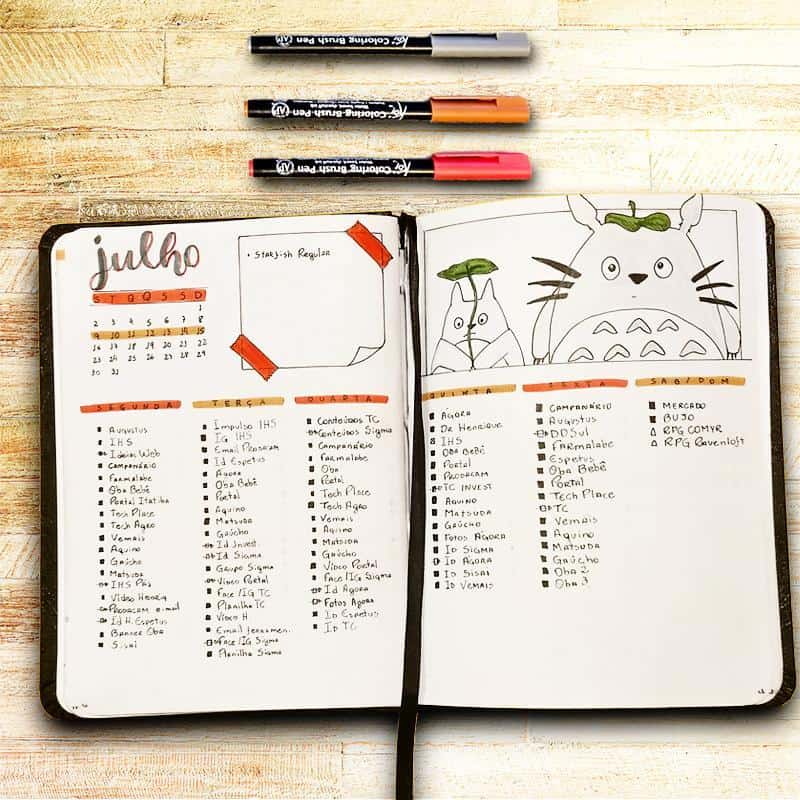 Coloring Brush Pen
Coloring Brush Pen
Coloring Brush Pen
julho
S T Q Q S S D
1
2 3 4 5 6 7 8
9 10 11 12 13 14 15
16 17 18 19 20 21 22
23 24 25 26 27 28 29
30 31
• Starfish Regular
SEGUNDA
Augustus
IHS
Ideias Web
Campanário
Farmalabe
Oba Bebê
Portal Itatiba
Tech Place
Tech Agro
Vemais
Aquino
Gaúcho
Matsuda
IHS Pãs
Vídeo Henriq
Prodacam e-mail
Id H. Espetus
Banner Oba
Sisai
TERÇA
Impulso IHS
IG IHS
Email Prodacam
Id Espetus
Agora
Oba Bebê
Portal
Aquino
Matsuda
Gaúcho
Id Invest.
Id Sigma
Grupo Sigma
Vídeo Portal
Face/IG TC
Planilha TC
Vídeo H
Email
Face/IG Sigma
Planilha Sigma
QUARTA
Conteúdos TC
Conteúdos Sigma
Campanário
Farmalabe
Oba
Portal
Tech Place
Tech Agro
Vemais
Aquino
Matsuda
Gaúcho
Vídeo Portal
Face/IG Sigma
Id Agora
Fotos Agora
Id Espetus
Id TC
QUINTA
Agora
Dr Henrique
IHS
Oba Bebê
Portal
Prodacam
TC Invest
Aquino
Matsuda
Gaúcho
Fotos Agora
Id Sigma
Id Agora
Id Sisai
Id Vemais
SEXTA
Campanário
Augustus
DDSul
Farmalabe
Espetus
Oba Bebê
Portal
Tech Place
TC
Vemais
Aquino
Matsuda
Gaúcho
Oba 2
Oba 3
SAB/DOM
Mercado
Bujo
RPG Comyr
RPG Ravenloft